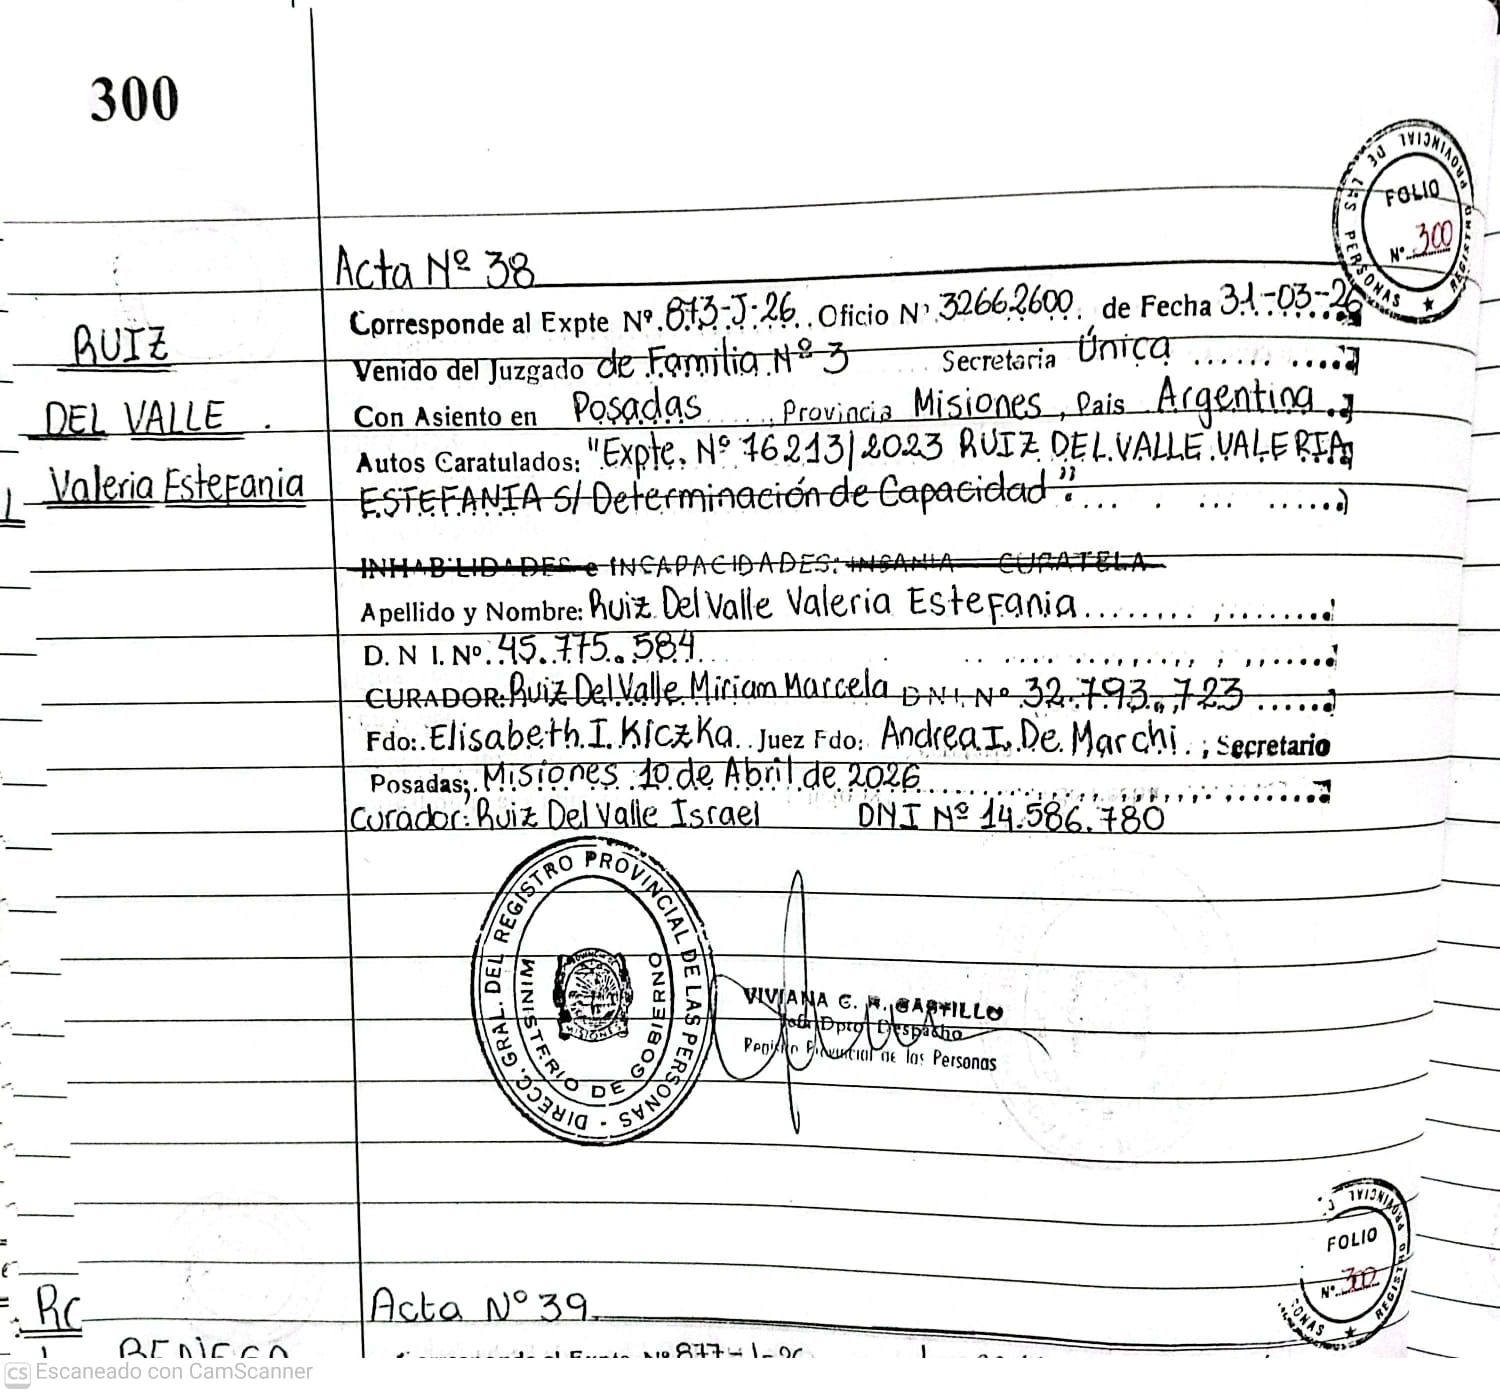 300
PROVINCIAL DE LAS PERSONAS ★ REGISTRO
FOLIO
Nº 300
Acta Nº 38
RUIZ
DEL VALLE
Valeria Estefania
Corresponde al Expte Nº 873-J-26 Oficio Nº 32662600 de Fecha 31-03-26
Venido del Juzgado de Familia Nº 3 Secretaria Única
Con Asiento en Posadas, Provincia Misiones, Pais Argentina
Autos Caratulados: "Expte. Nº 76213/2023 RUIZ DEL VALLE VALERIA
ESTEFANIA S/ Determinación de Capacidad".
INHABILIDADES e INCAPACIDADES: INSANIA — CURATELA
Apellido y Nombre: Ruiz Del Valle Valeria Estefania
D. N I. Nº 45.775.584
CURADOR: Ruiz Del Valle Miriam Marcela DNI. Nº 32.793.723
Fdo: Elisabeth I. Kiczka Juez Fdo: Andrea I. De Marchi; Secretario
Posadas; Misiones 10 de Abril de 2026
Curador: Ruiz Del Valle Israel DNI Nº 14.586.780
DIRECC. GRAL. DEL REGISTRO PROVINCIAL DE LAS PERSONAS -
MINISTERIO DE GOBIERNO
MISIONES
VIVIANA C. R. CASTILLO
Jefa Dpto Despacho
Registro Provincial de las Personas
PROVINCIAL
FOLIO
Nº 302
Acta Nº 39
Rc
Nº 877-
CS Escaneado con CamScanner